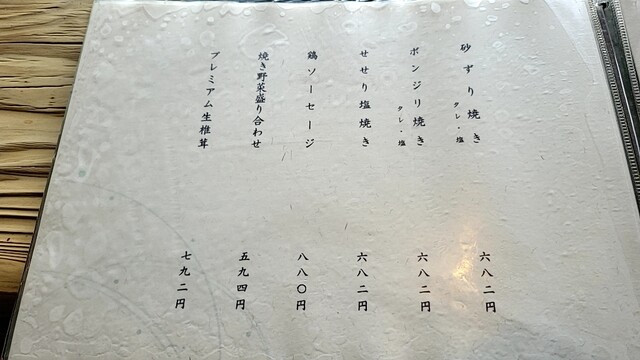 砂ずり焼き
タレ・塩
ボンジリ焼き
タレ・塩
せせり塩焼き
鶏ソーセージ
焼き野菜盛り合わせ
プレミアム生椎茸
六八二円
六八二円
六八二円
八八〇円
五九四円
七九二円